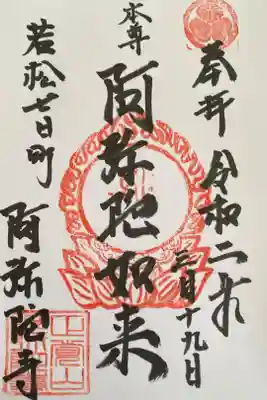 奉拝
令和二年
三月十九日
本尊
阿弥陀如来
若松七日町
阿弥陀寺
正覚山